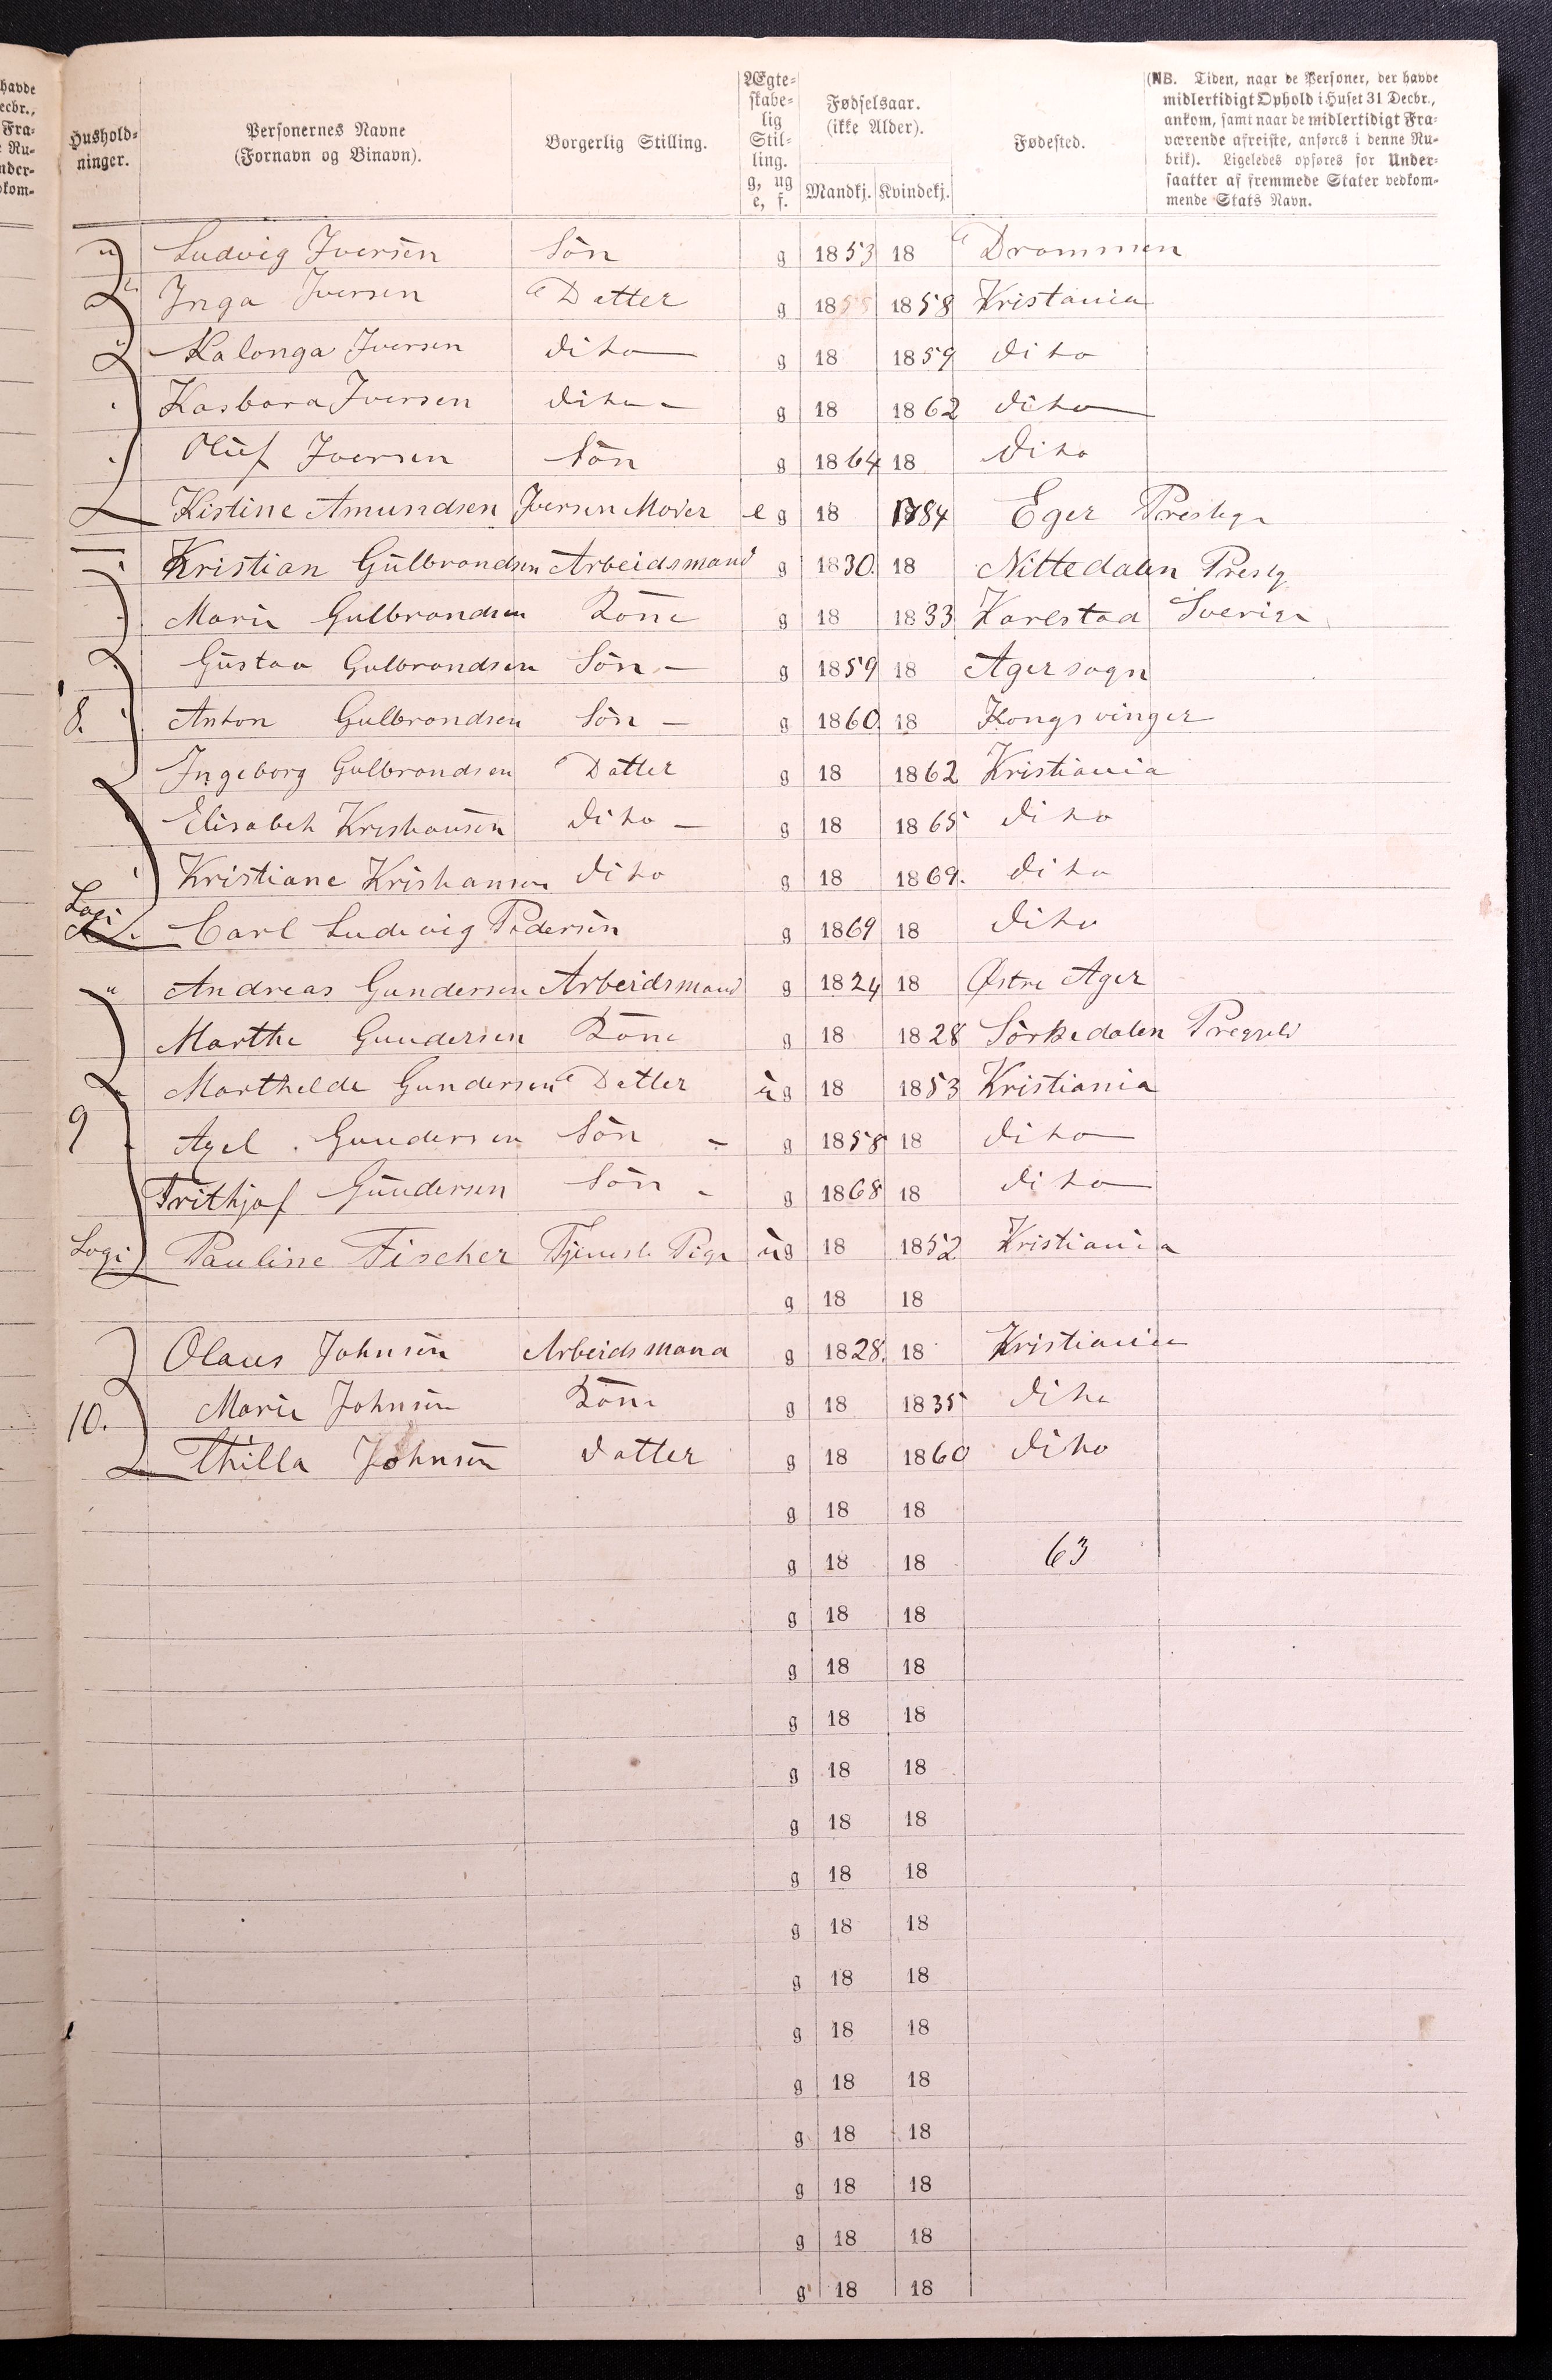 havde
ecbr.,
Fra-
Ru-
nder-
dkom-
Hushold-
ninger.
Personernes Navne
(Fornavn og Binavn).
Borgerlig Stilling.
Ægte-
skabe-
lig
Stil-
ling.
g, ug
e, f.
Fødselsaar.
(ikke Alder).
Mandkj. Kvindekj.
Fødested.
(NB. Tiden, naar de Personer, der havde
midlertidigt Ophold i Huset 31 Decbr.,
ankom, samt naar de midlertidigt Fra-
værende afreiste, anføres i denne Ru-
brik). Ligeledes opføres for Under-
saatter af fremmede Stater vedkom-
mende Stats Navn.
Ludvig Iversen Sön g 1853 18 Drammen
Inga Iversen Datter g 1855 1858 Kristania
Kalonga Iversen dito g 18 1859 dito
Kasbara Iversen dito g 18 1862 dito
Oluf Iversen Sön g 1864 18 dito
Kistine Amundsen Iversen Moder e g 18 1784 Eger Prestegr
Kristian Gulbrandsen Arbeidsmand g 1830. 18 Nittedalen Prestg
Marie Gulbrandsen Kone g 18 1833 Karlstad Sverige
Gustav Gulbrandsen Sön - g 1859 18 Ager sogn
8. Anton Gulbrandsen Sön - g 1860. 18 Kongsvinger
Ingeborg Gulbrandsen Datter g 18 1862 Kristiania
Elisabeth Kristiansen dito - g 18 1865 dito
Kristiane Kristiansen dito g 18 1869. dito
Logi Carl Ludevig Pedersen g 1869 18 dito
" Andreas Gundersen Arbeidsmand g 1824 18 Østre Ager
Marthe Gundersen Kone g 18 1828 Sörkedalen
Marthelde Gundersen Datter ug 18 1853 Kristiania
9 Axel Gundersen Sön - g 1858 18 dito
Frithjof Gundersen Sön - g 1868 18 dito
Logi Pauline Fischer Tjeneste Pige ug 18 1852 Kristiania
g 18 18
Olaus Johnsen Arbeidsmand g 1828. 18 Kristiania
10. Marie Johnsen Kone g 18 1835 dito
Thilla Johnsen datter g 18 1860 dito
g 18 18
g 18 18 63
g 18 18
g 18 18
g 18 18
g 18 18
g 18 18
g 18 18
g 18 18
g 18 18
g 18 18
g 18 18
g 18 18
g 18 18
g 18 18
g 18 18